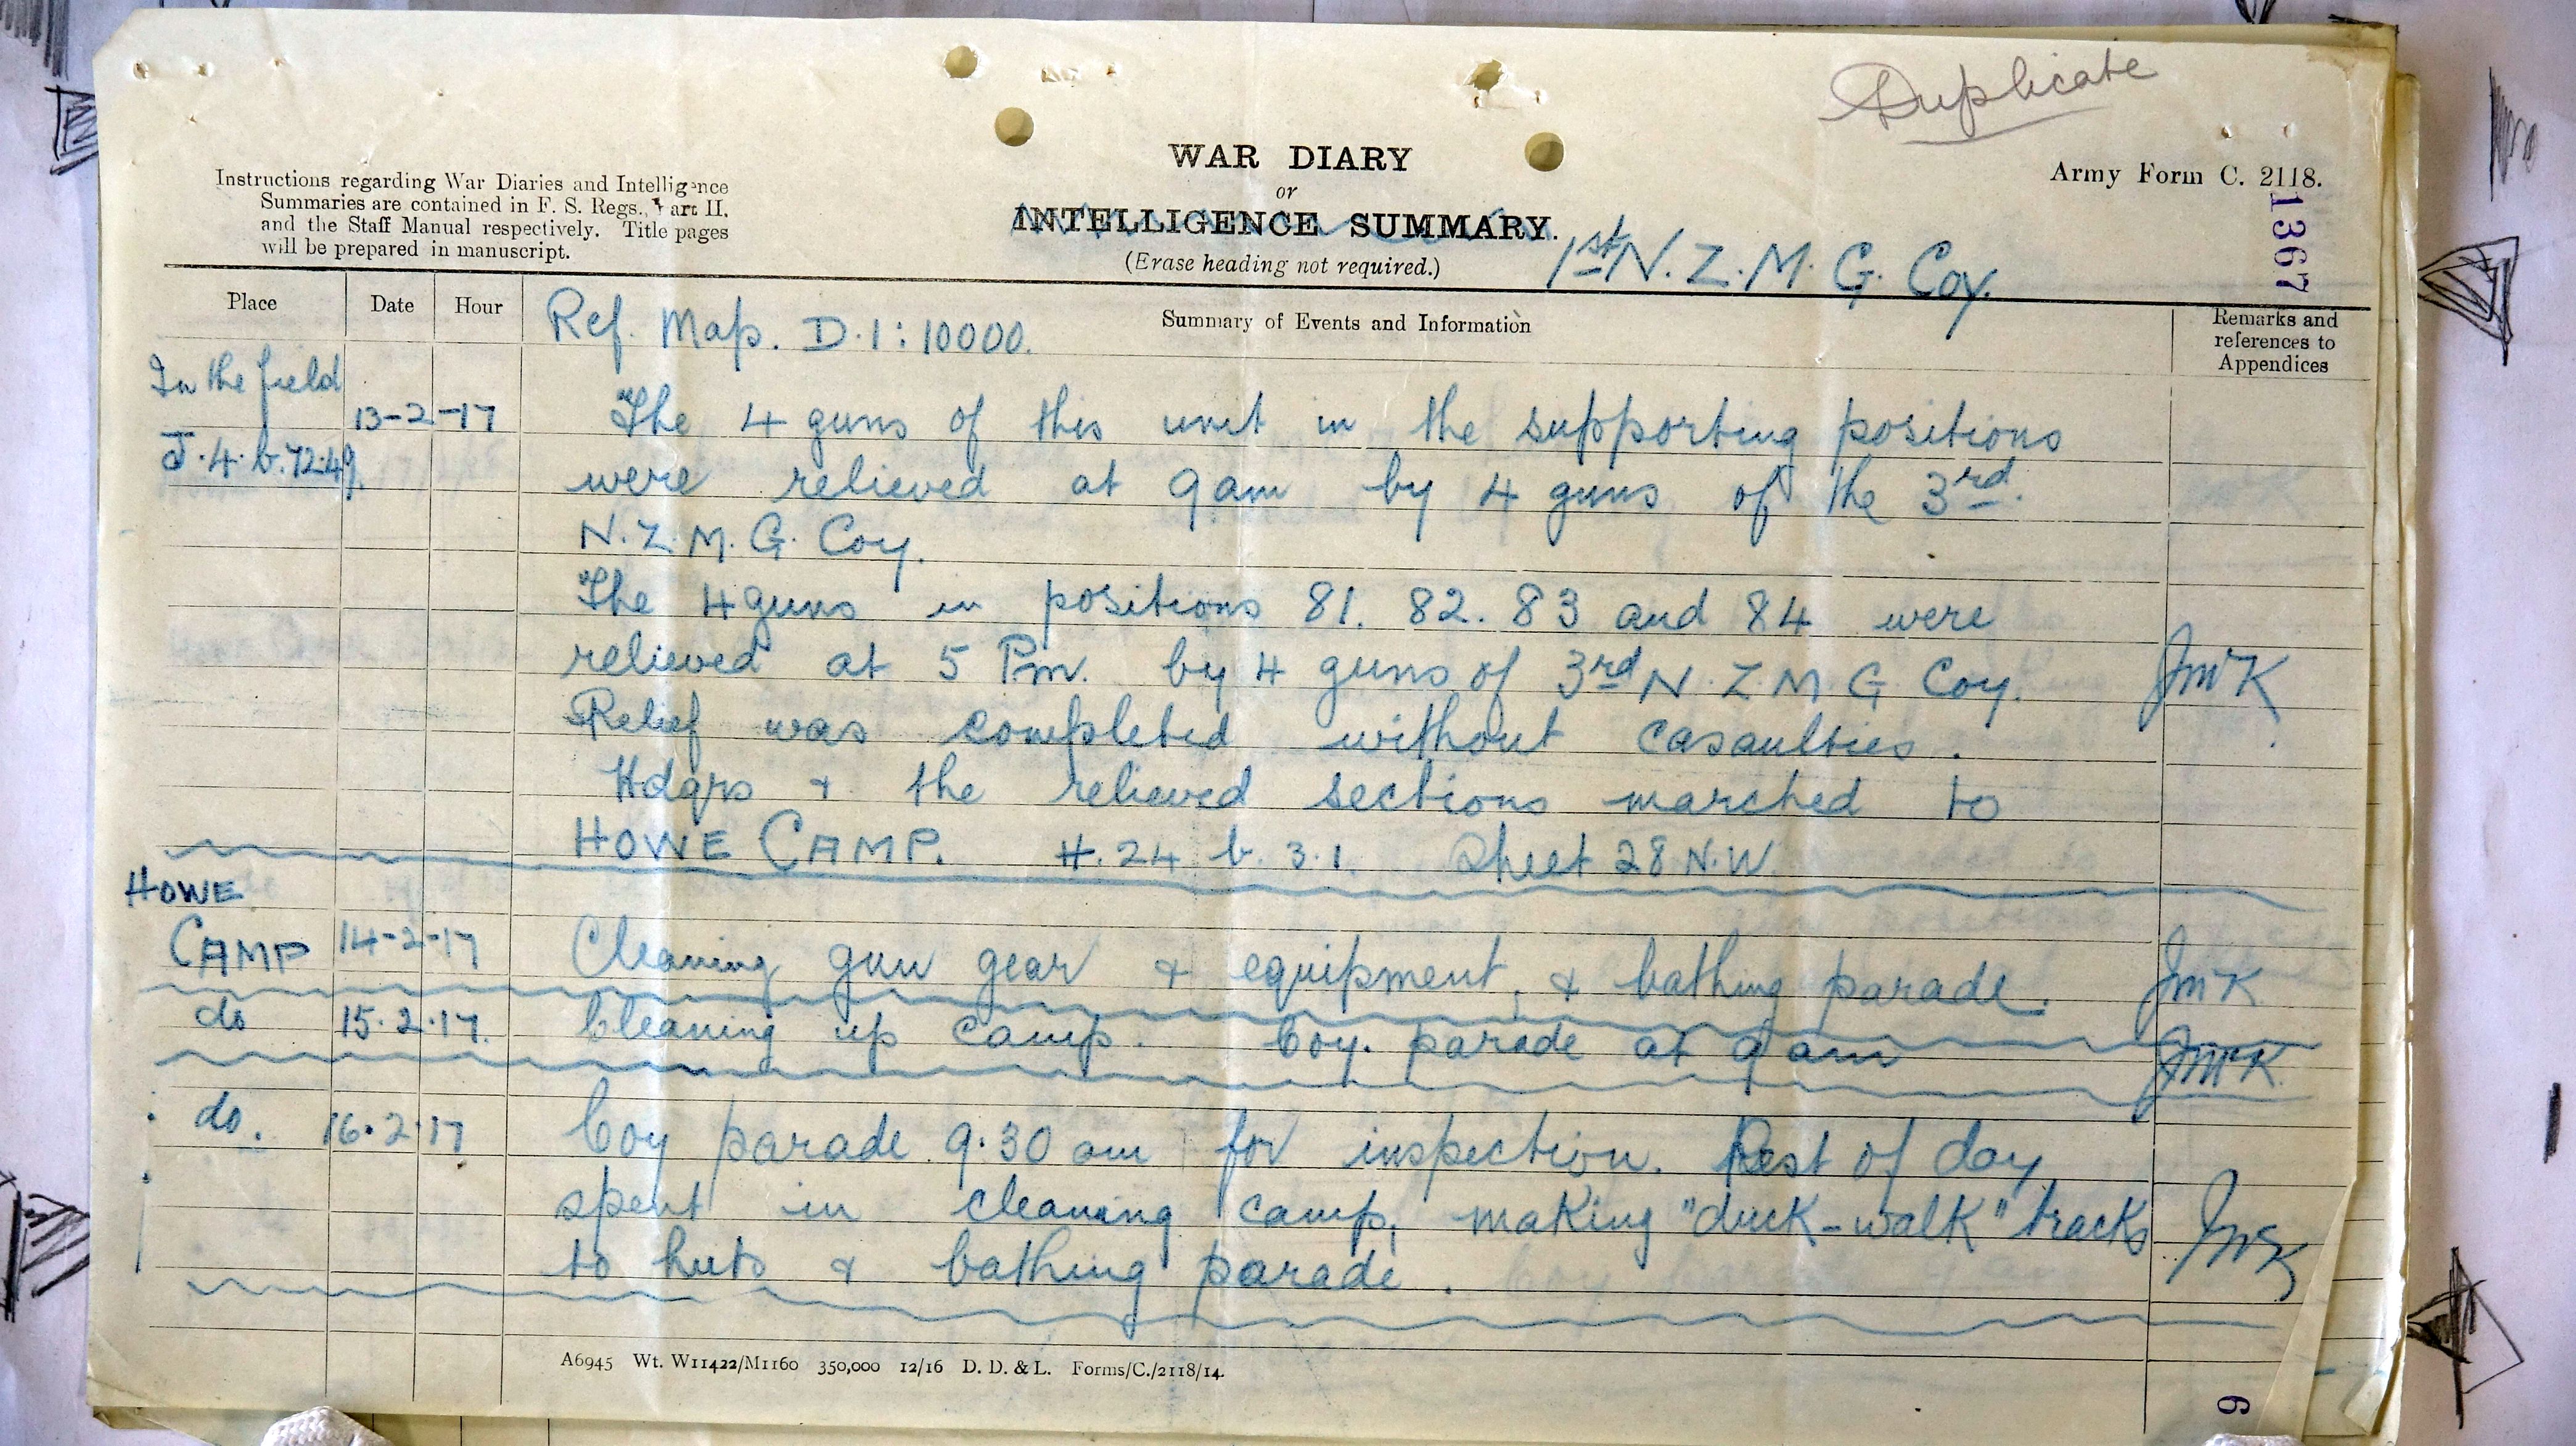 Duplicate
Army Form C. 2118.
1367
Instructions regarding War Diaries and Intelligence
Summaries are contained in F. S. Regs., Part II.
and the Staff Manual respectively. Title pages
will be prepared in manuscript.
WAR DIARY
or
INTELLIGENCE SUMMARY.
(Erase heading not required.)
1st N. Z. M. G. Coy.
Place
Date
Hour
Summary of Events and Information
Remarks and
references to
Appendices
Ref. Map. D. 1 : 10000.
In the field
J. 4. b. 72.49.
13-2-17
The 4 guns of this unit in the supporting positions
were relieved at 9 am by 4 guns of the 3rd.
N. Z. M. G. Coy.
The 4 guns in positions 81. 82. 83 and 84 were
relieved at 5 Pm. by 4 guns of 3rd N. Z M. G Coy.
JMcK
Relief was completed without casaulties.
Hdqrs & the relieved sections marched to
HOWE CAMP. H. 24 b. 3.1. Sheet 28 N.W.
HOWE
CAMP 14-2-17 Cleaning gun gear & equipment, & bathing parade. JMcK
do 15.2.17. Cleaning up camp. Coy. parade at 9 am JMcK.
do. 16.2.17 Coy parade 9.30 am for inspection. Rest of day
spent in cleaning camp, making "duck-walk" tracks JMcK
to huts & bathing parade.
A6945 Wt. W11422/M1160 350,000 12/16 D. D. & L. Forms/C./2118/14.
6